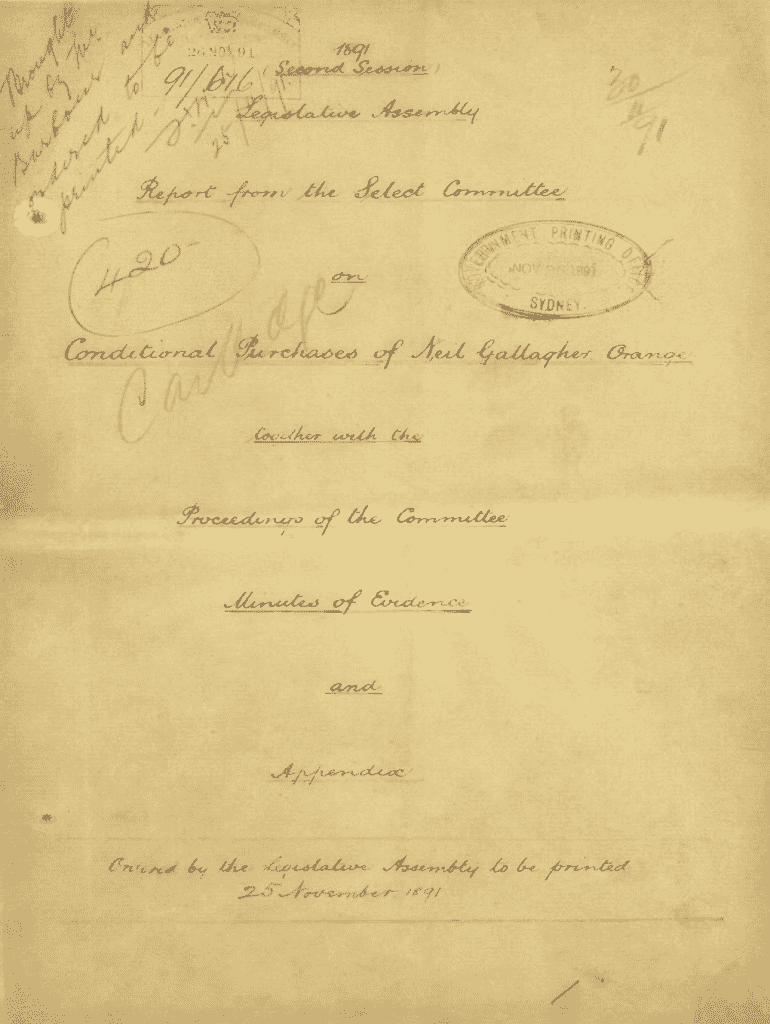 Brought
up by Mr.
Barbour and
ordered to be
printed.
26 NOV 91
91/676
25/11/91
1891
Second Session
30/11/91
Legislative Assembly
Report from the Select Committee
420
on
GOVERNMENT PRINTING OFFICE
NOV 1891
SYDNEY.
Conditional Purchases of Neil Gallagher Orange
together with the
Proceedings of the Committee
Minutes of Evidence
and
Appendix
Ordered by the Legislative Assembly to be printed
25 November 1891